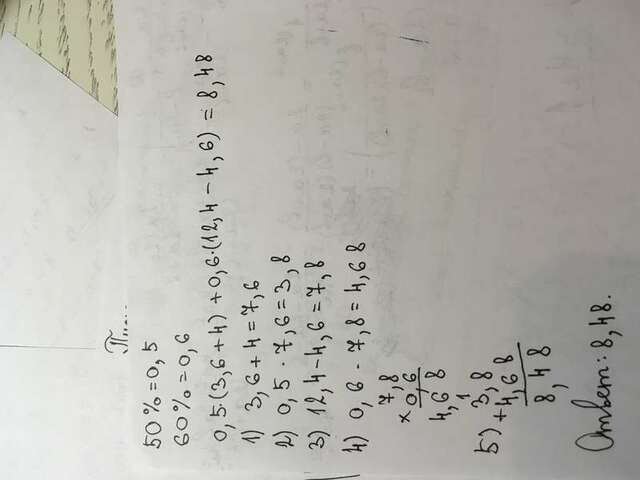 50%=0,5
60%=0,6
0,5·(3,6+4)+0,6·(12,4-4,6)=8,48
1) 3,6+4=7,6
2) 0,5·7,6=3,8
3) 12,4-4,6=7,8
4) 0,6-7,8=4,68
7,8
×0,6
4,68
1
5) 3,8
+4,68
8,48
Ответ: 8,48.